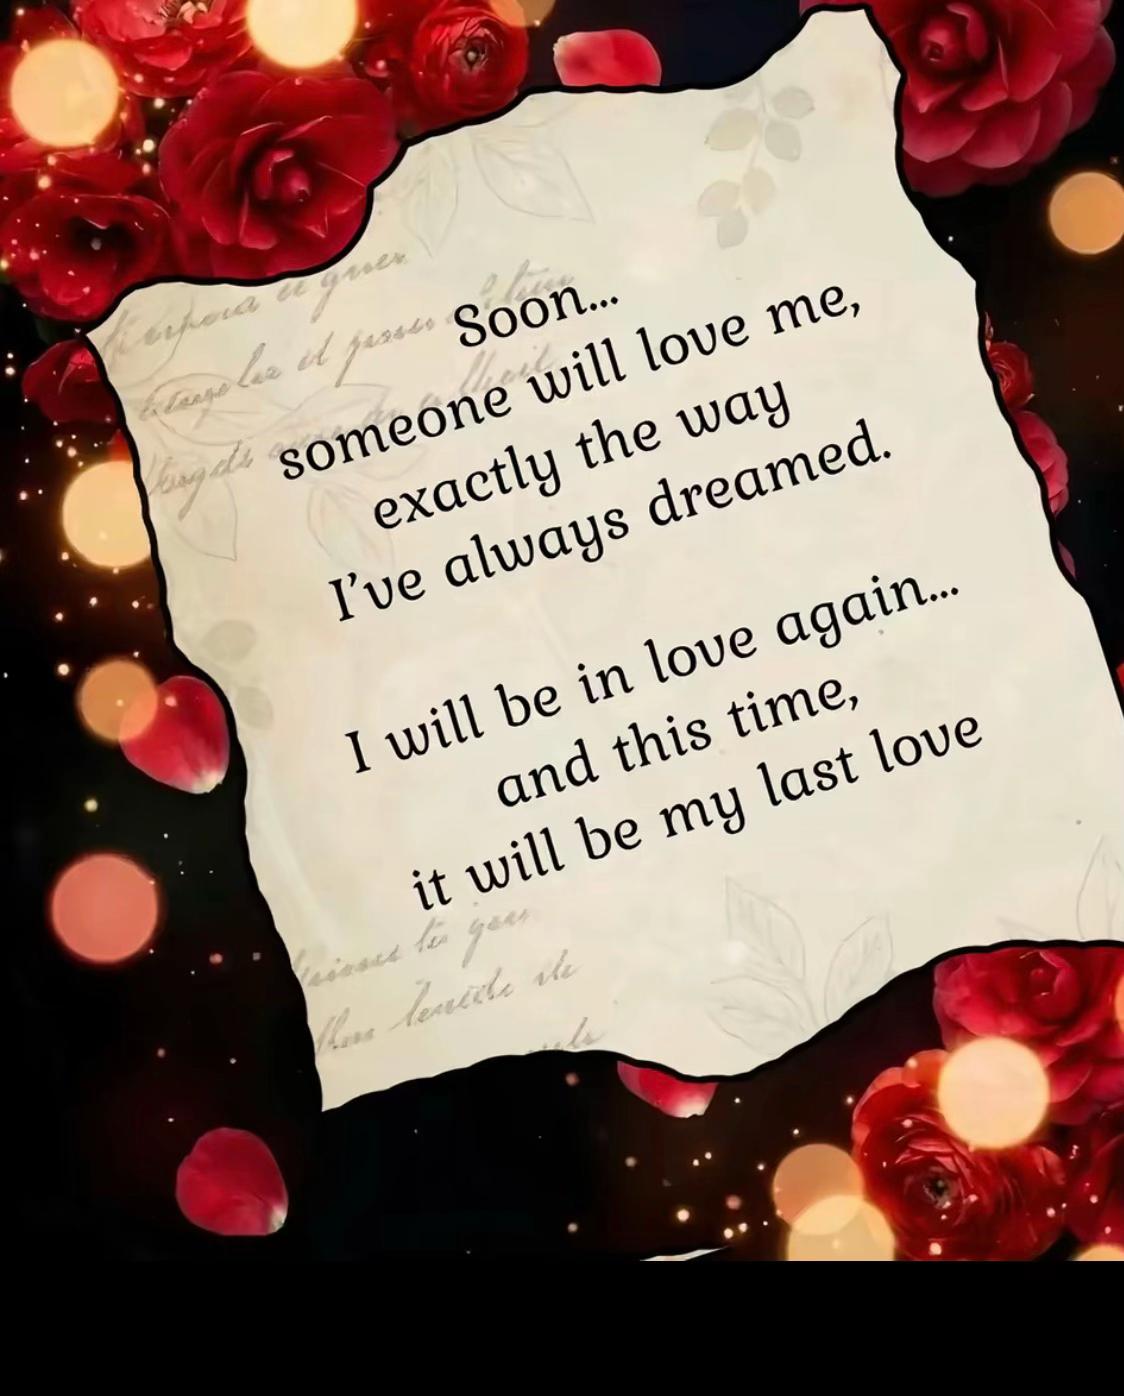 Soon...
someone will love me,
exactly the way
I've always dreamed.
I will be in love again...
and this time,
it will be my last love